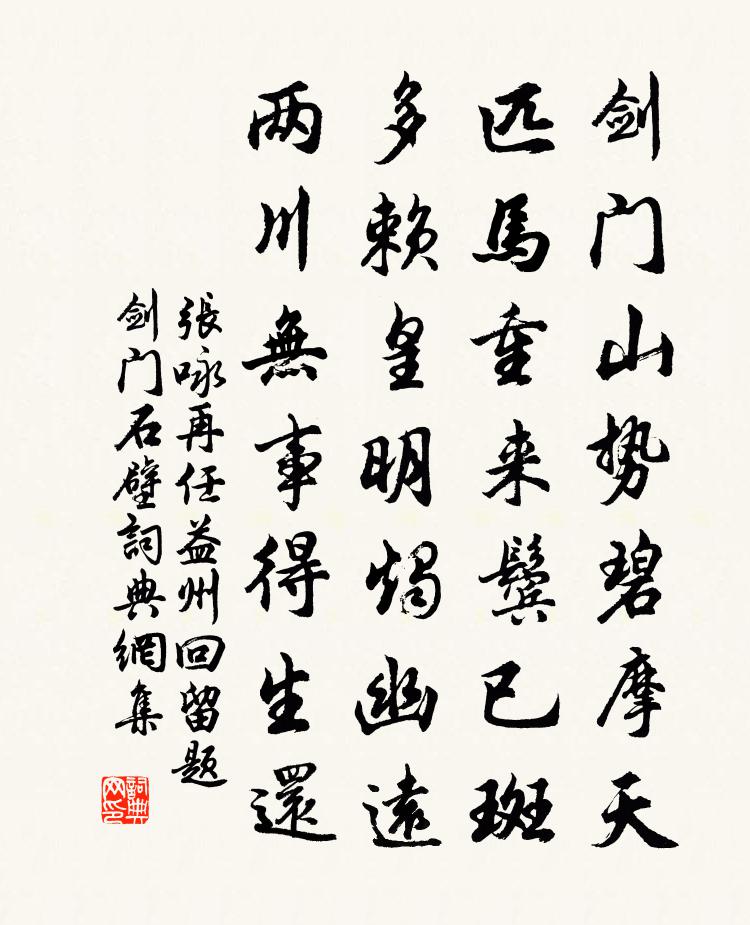 剑门山势碧摩天
匹馬重来鬓已斑
多赖皇明燭幽遠
两川無事得生還
張咏再任益州回留题
剑门石壁詞典網集
詞典网印